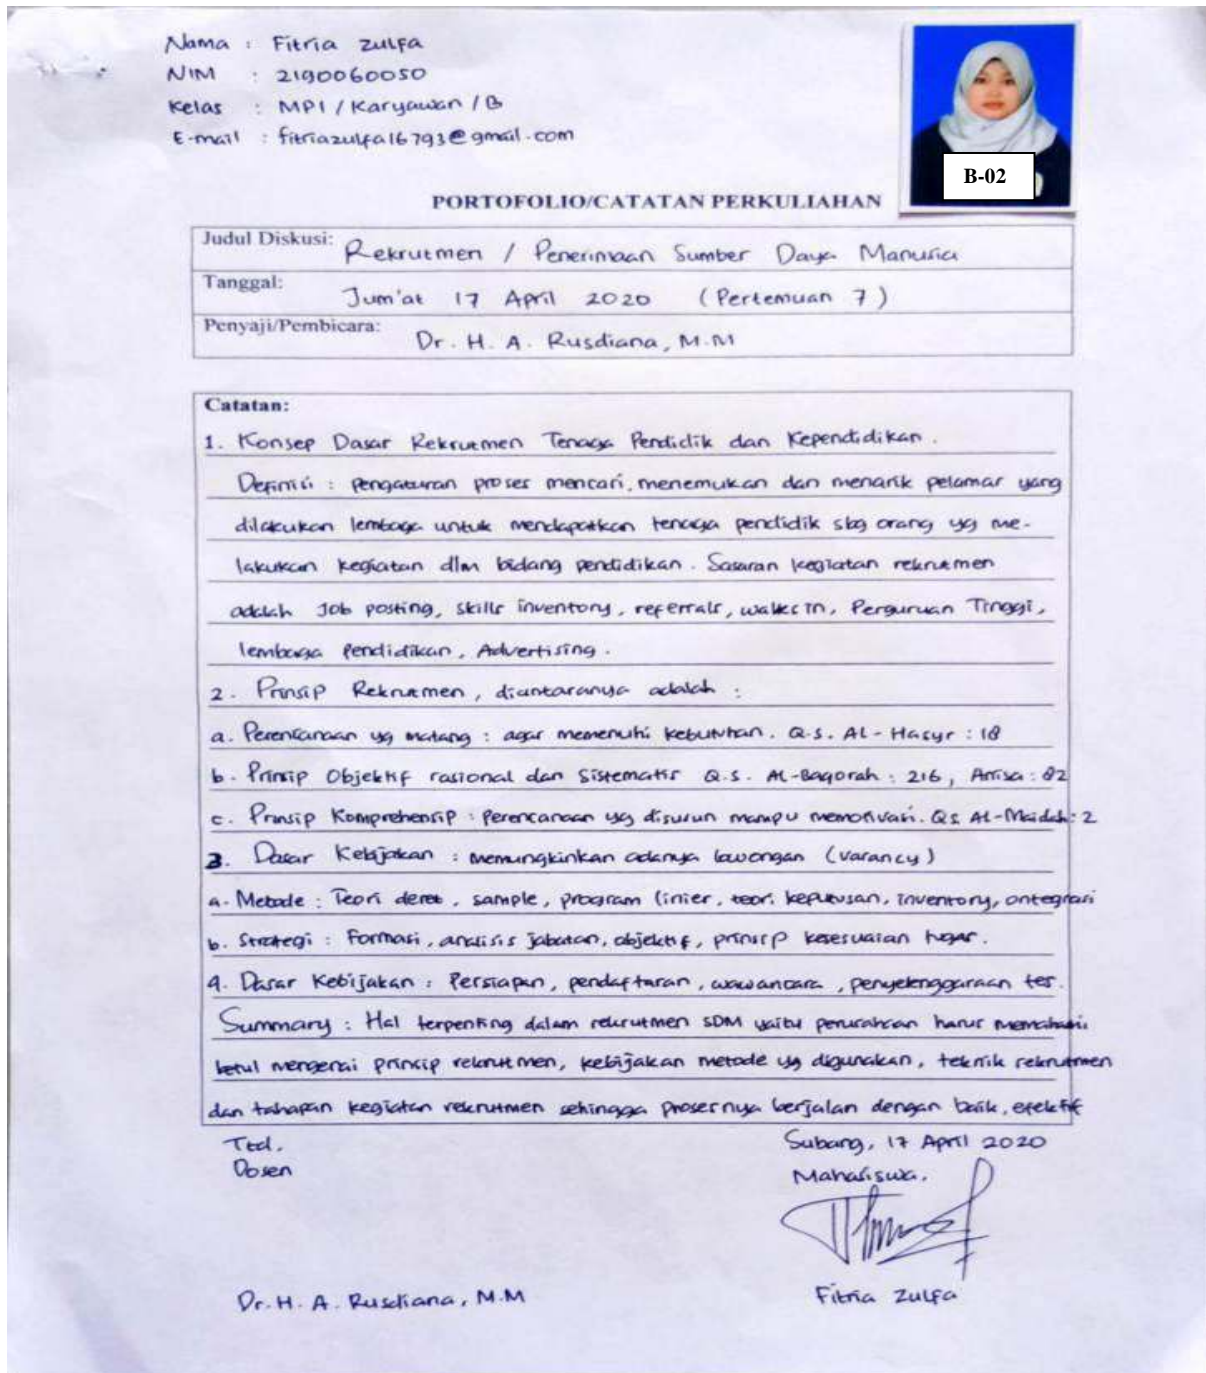 Nama : Fitria Zulfa
NIM : 2190060050
Kelas : MPI / Karyawan / B
E-mail : fitriazulfa16793@gmail.com
B-02
PORTOFOLIO/CATATAN PERKULIAHAN
Judul Diskusi: Rekrutmen / Penerimaan Sumber Daya Manusia
Tanggal: Jum'at 17 April 2020 (Pertemuan 7)
Penyaji/Pembicara: Dr. H. A. Rusdiana, M.M
Catatan:
1. Konsep Dasar Rekrutmen Tenaga Pendidik dan Kependidikan.
Definisi : Pengaturan proses mencari, menemukan dan menarik pelamar yang
dilakukan lembaga untuk mendapatkan tenaga pendidik sbg orang yg me-
lakukan kegiatan dlm bidang pendidikan. Sasaran kegiatan rekrutmen
adalah Job posting, skills inventory, referrals, walks in, Perguruan Tinggi,
lembaga Pendidikan, Advertising.
2. Prinsip Rekrutmen, diantaranya adalah :
a. Perencanaan yg matang : agar memenuhi kebutuhan. Q.S. Al-Hasyr : 18
b. Prinsip Objektif rasional dan Sistematis Q.S. Al-Baqorah : 216, Anisa : 82
c. Prinsip Komprehensip : Perencanaan yg disusun mampu memotivasi. Qs Al-Maidah : 2
3. Dasar Kebijakan : memungkinkan adanya lowongan (varancy)
a. Metode : Teori deret, sample, program linier, teori keputusan, inventory, ontegrasi
b. Strategi : Formasi, analisis jabatan, objektif, prinsip kesesuaian tugas.
4. Dasar Kebijakan : Persiapan, pendaftaran, wawancara, penyelenggaraan tes.
Summary : Hal terpenting dalam rekrutmen SDM yaitu perusahaan harus memahami
betul mengenai prinsip rekrutmen, kebijakan metode yg digunakan, teknik rekrutmen
dan tahapan kegiatan rekrutmen sehingga prosesnya berjalan dengan baik, efektif
Ttd.
Dosen
Subang, 17 April 2020
Mahasiswa.
Dr. H. A. Rusdiana, M.M
Fitria Zulfa